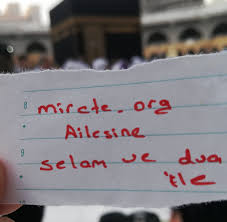 8 mircte.org
Ailesine
9 selam ve dua
'tle